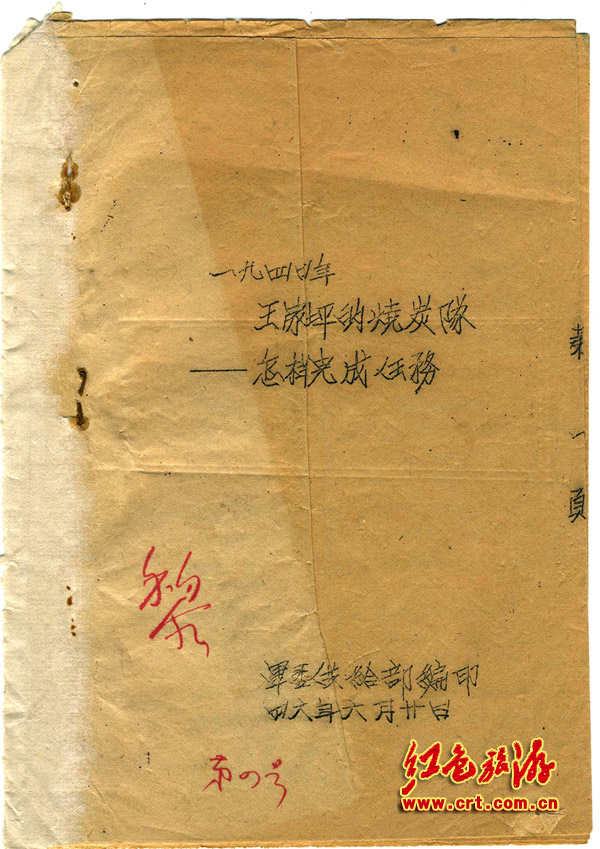 一九四四年
王家坪的燒炭隊
——怎样完成任務
第一頁
軍委供給部編印
四六年六月廿日
第四号
红色旅游
www.crt.com.cn